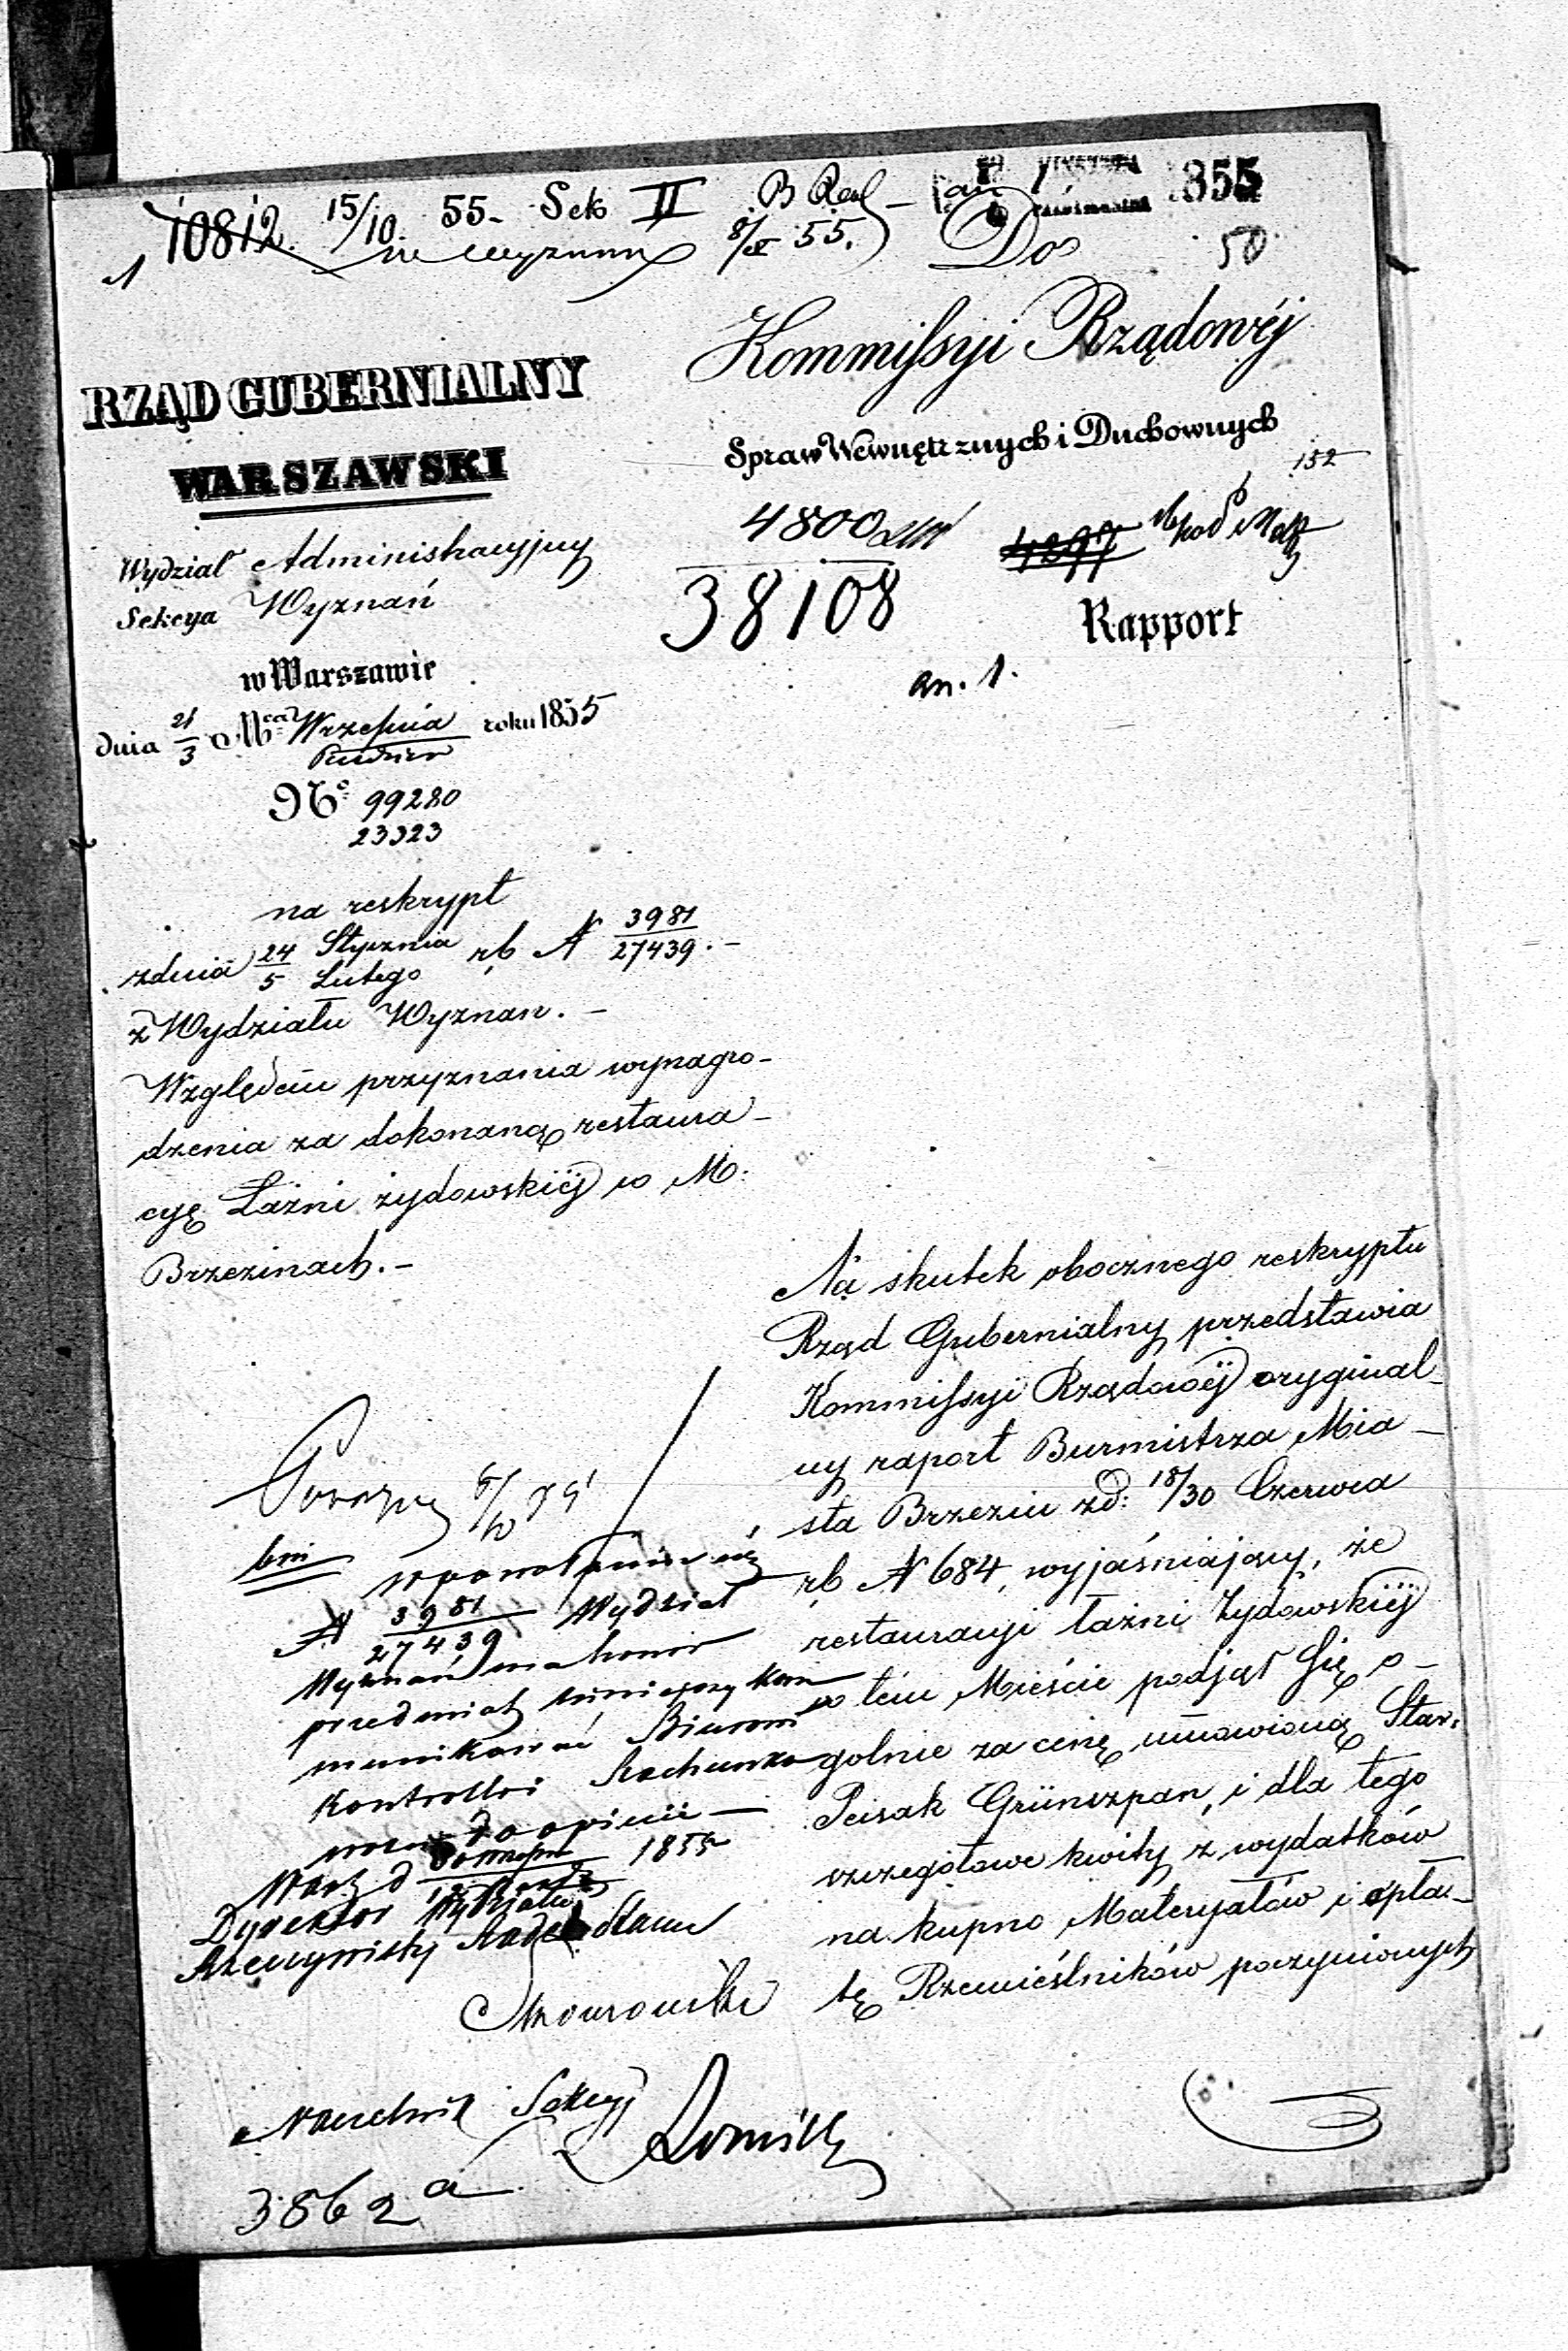 10812. 15/10 55. Sek II
8/X 55.
1855
50
Do
Kommissyi Rządowéj
Spraw Wewnętrznych i Duchownych
152
4800
38108
Rapport
an. 1.
RZĄD GUBERNIALNY
WARSZAWSKI
Wydział Administracyjny
Sekcya Wyznań
w Warszawie
dnia 21/3 Mca Września roku 1855
No 99280
23323
na reskrypt
z dnia 24/5 Stycznia/Lutego rb N 3981/27439. -
z Wydziału Wyznan. -
Względem przyznania wynagro-
dzenia za dokonaną restaura-
cyę Łaźni żydowskiéj w M.
Brzezinach. -
Na skutek obocznego reskryptu
Rząd Gubernialny przedstawia
Kommissyi Rządowéj oryginal-
ny raport Burmistrza Mia-
sta Brzezin zd: 18/30 Czerwca
rb N 684, wyjaśniający, że
restauracyi łaźni Żydowskiéj
w tém Mieście podjął się o-
gólnie za cenę umówioną Star:
Peisak Grünszpan, i dla tego
szczegółowe kwity z wydatków
na kupno Materyałów i opła-
tę Rzemieślników poczynionych
bni
N 3981/27439 Wydział
Wyznań ma honor
przedmiot niniejszy kom
munikować Biurowi
Kontrolli Rachunko
do opinii —
1855
Dyrektor Wydziału
Rzeczywisty Radca Stanu
Naczelnik Sekcyi
3862